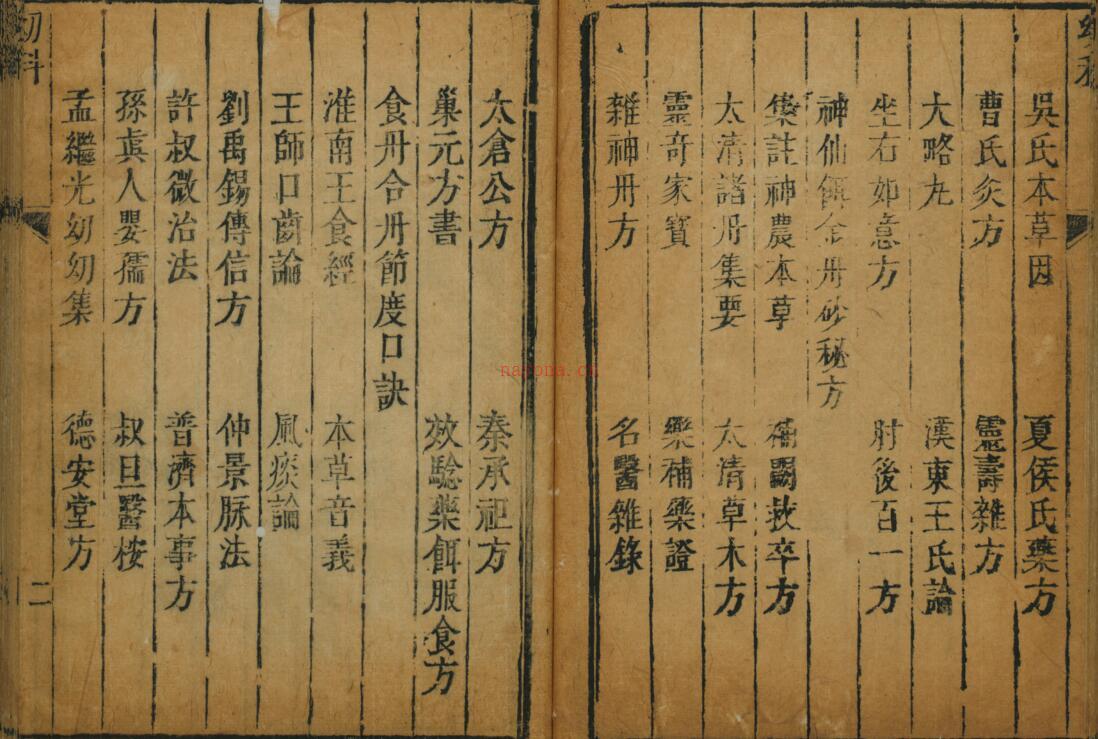 吳氏本草因　夏侯氏藥方
曹氏灸方　靈壽雜方
大略丸　漢東王氏論
坐右如意方　肘後百一方
神仙餌金丹砂秘方
集註神農本草　補闕救卒方
太清諸丹集要　太清草木方
靈奇家寶　藥補藥證
雜神丹方　名醫雜錄
太倉公方　秦承祖方
巢元方書　效驗藥餌服食方
食丹合丹節度口訣
淮南王食經　本草音義
王師口齒論　風痰論
劉禹錫傳信方　仲景脉法
許叔微治法　普濟本事方
孫真人嬰孺方　叔旦醫桉
孟繼光幼幼集　德安堂方
幼科
二